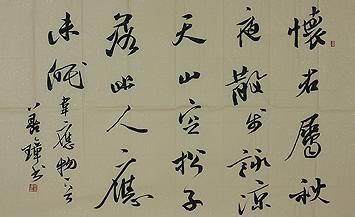 懷君屬秋
夜散步詠涼
天山空松子
落幽人應
未眠韋應物
書